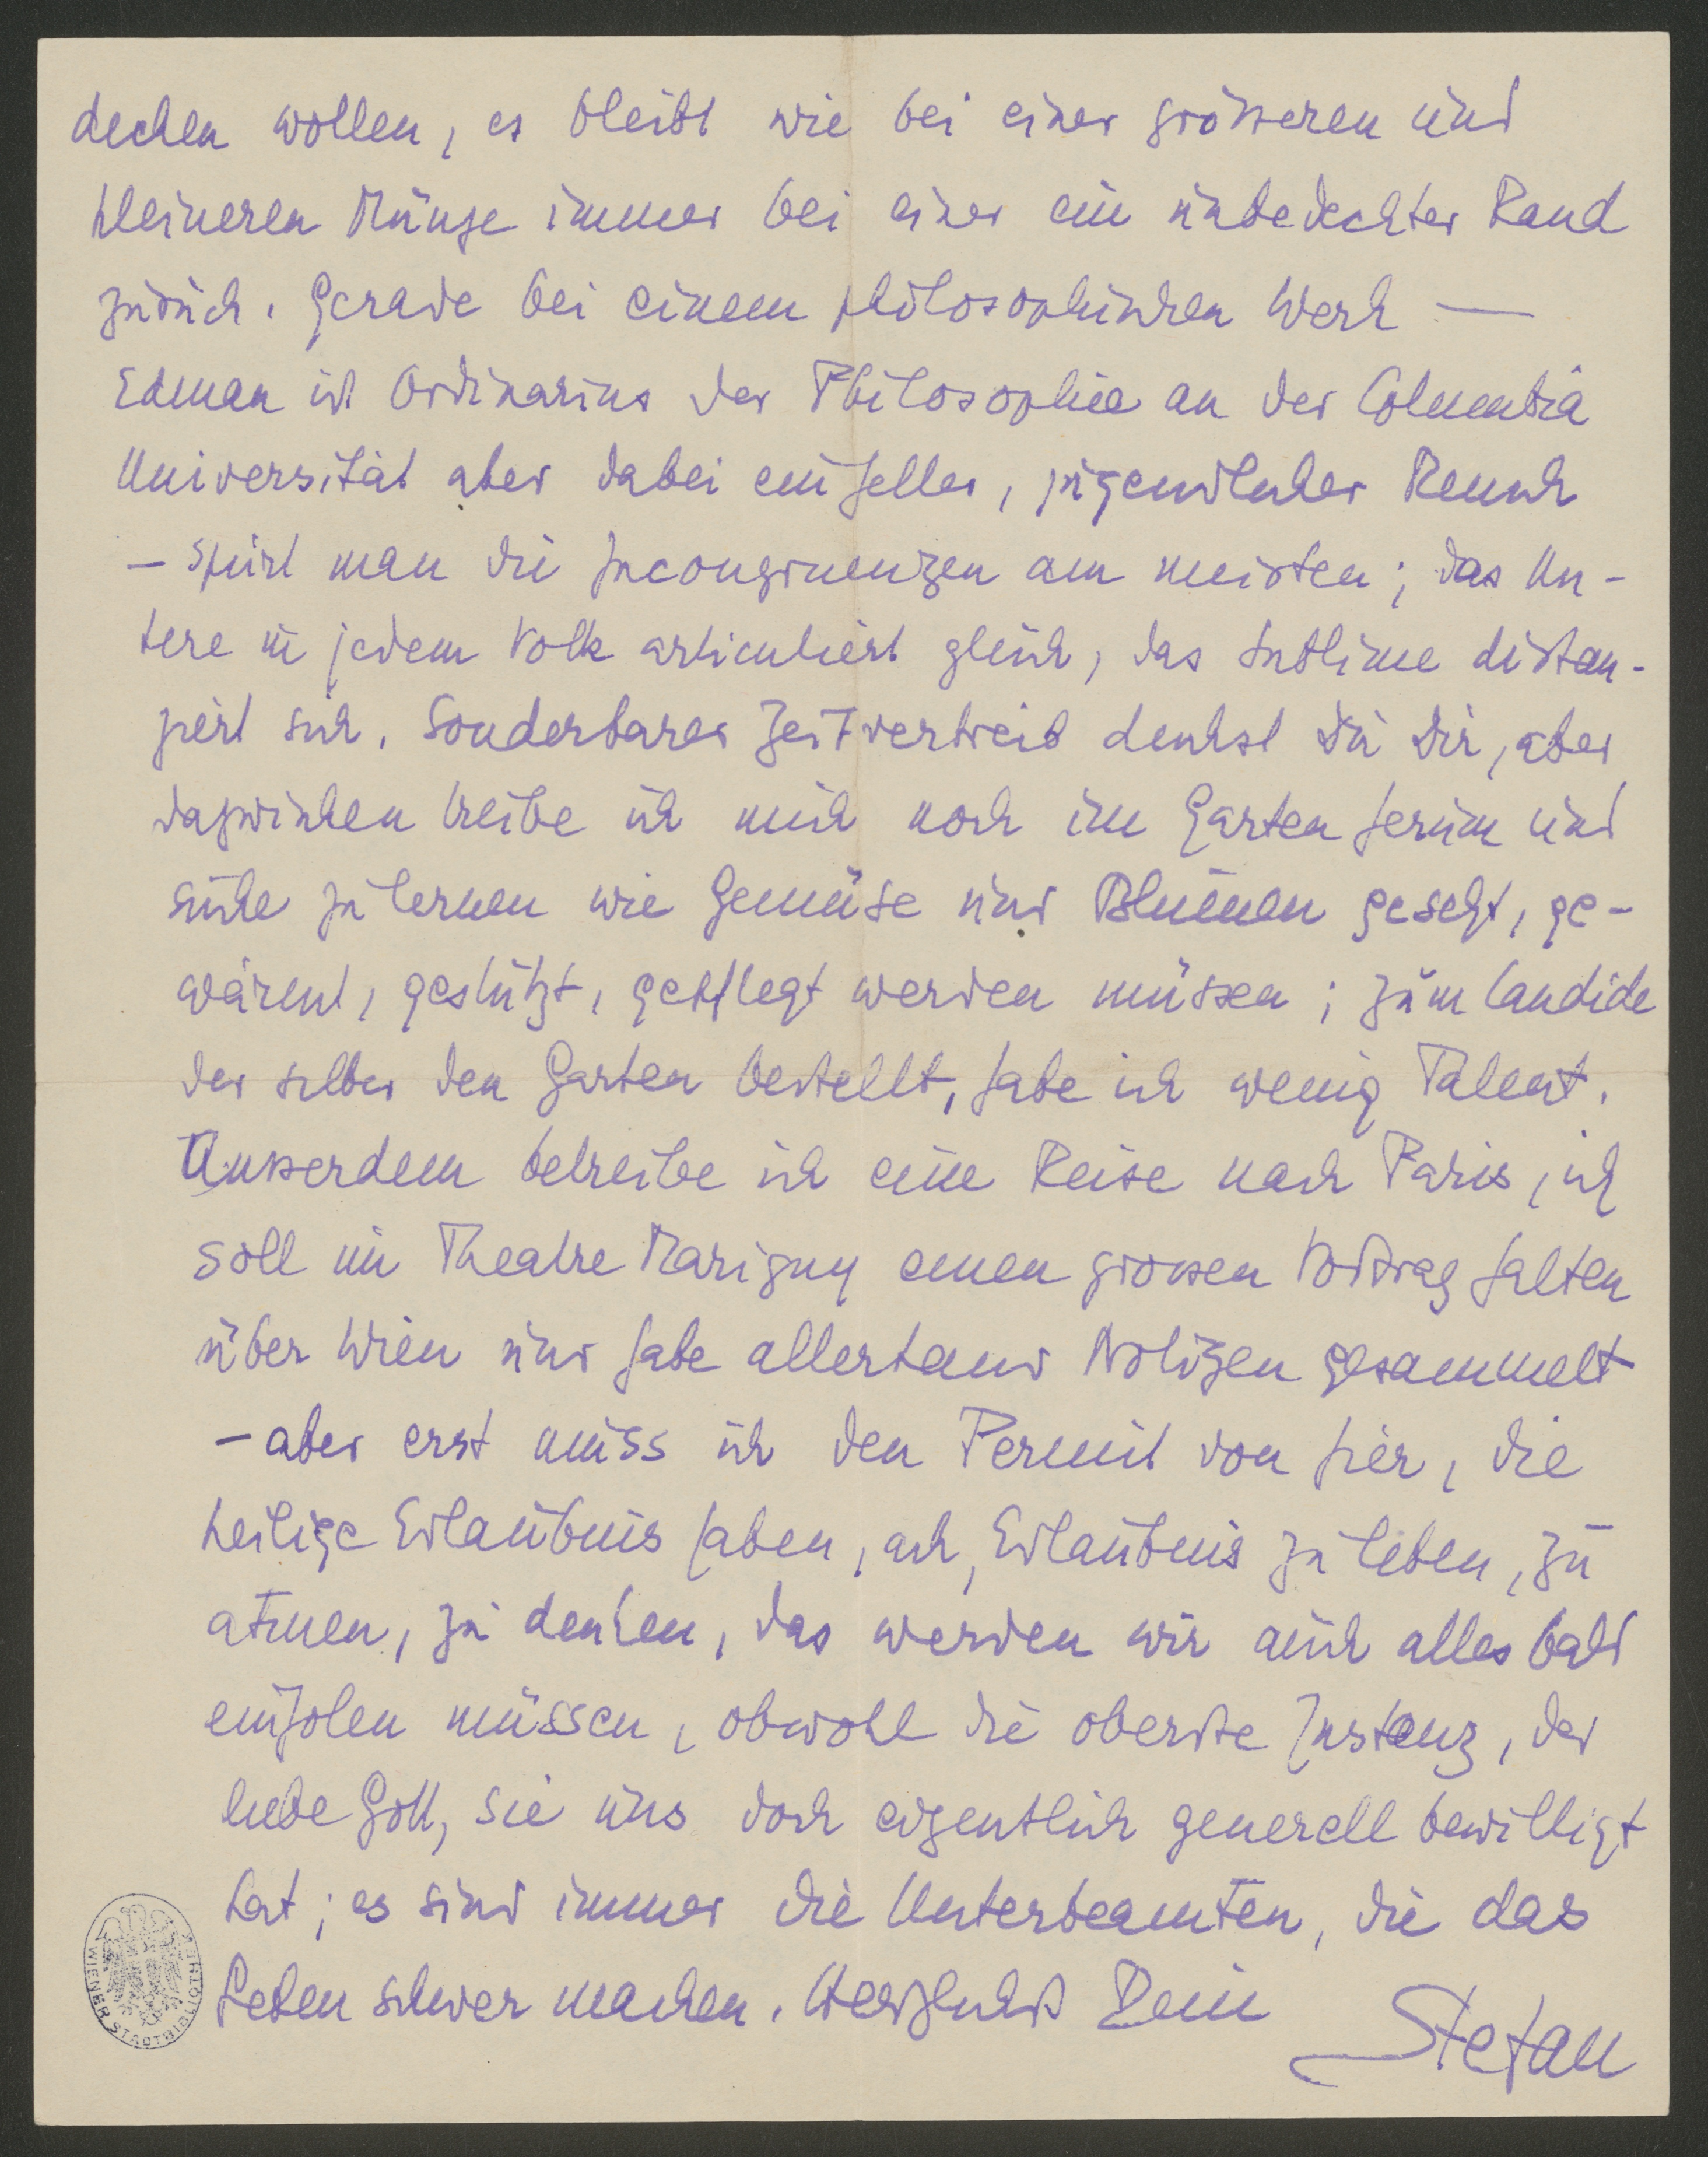 decken wollen, es bleibt wie bei einer grösseren und
kleineren Münze immer bei einer ein unbedeckter Rand
zurück. Gerade bei einem philosophischen Werk —
Edman ist Ordinarius der Philosophie an der Columbia
Universität aber dabei ein heller, jugendlicher Mensch
– spürt man die Incongruenzen am meisten; das Un-
tere in jedem Volk articuliert gleich, das Sublime distan-
ziert sich. Sonderbarer Zeitvertreib denkst Du Dir, aber
dazwischen treibe ich mich noch im Garten herum und
suche zu lernen wie Gemüse und Blumen gesetzt, ge-
wärmt, gestützt, gepflegt werden müssen; zum Candide
der selber den Garten bestellt, habe ich wenig Talent.
Ausserdem betreibe ich eine Reise nach Paris, ich
soll im Theatre Marigny einen grossen Vortrag halten
über Wien und habe allerhand Notizen gesammelt
– aber erst muss ich den Permit von hier, die
heilige Erlaubnis haben, ach, Erlaubnis zu leben, zu
atmen, zu denken, das werden wir auch alles bald
einholen müssen, obwohl die oberste Instanz, der
liebe Gott, sie uns doch eigentlich generell bewilligt
hat; es sind immer die Unterbeamten, die das
Leben schwer machen. Herzlichst Dein
Stefan
WIENER STADTBIBLIOTHEK